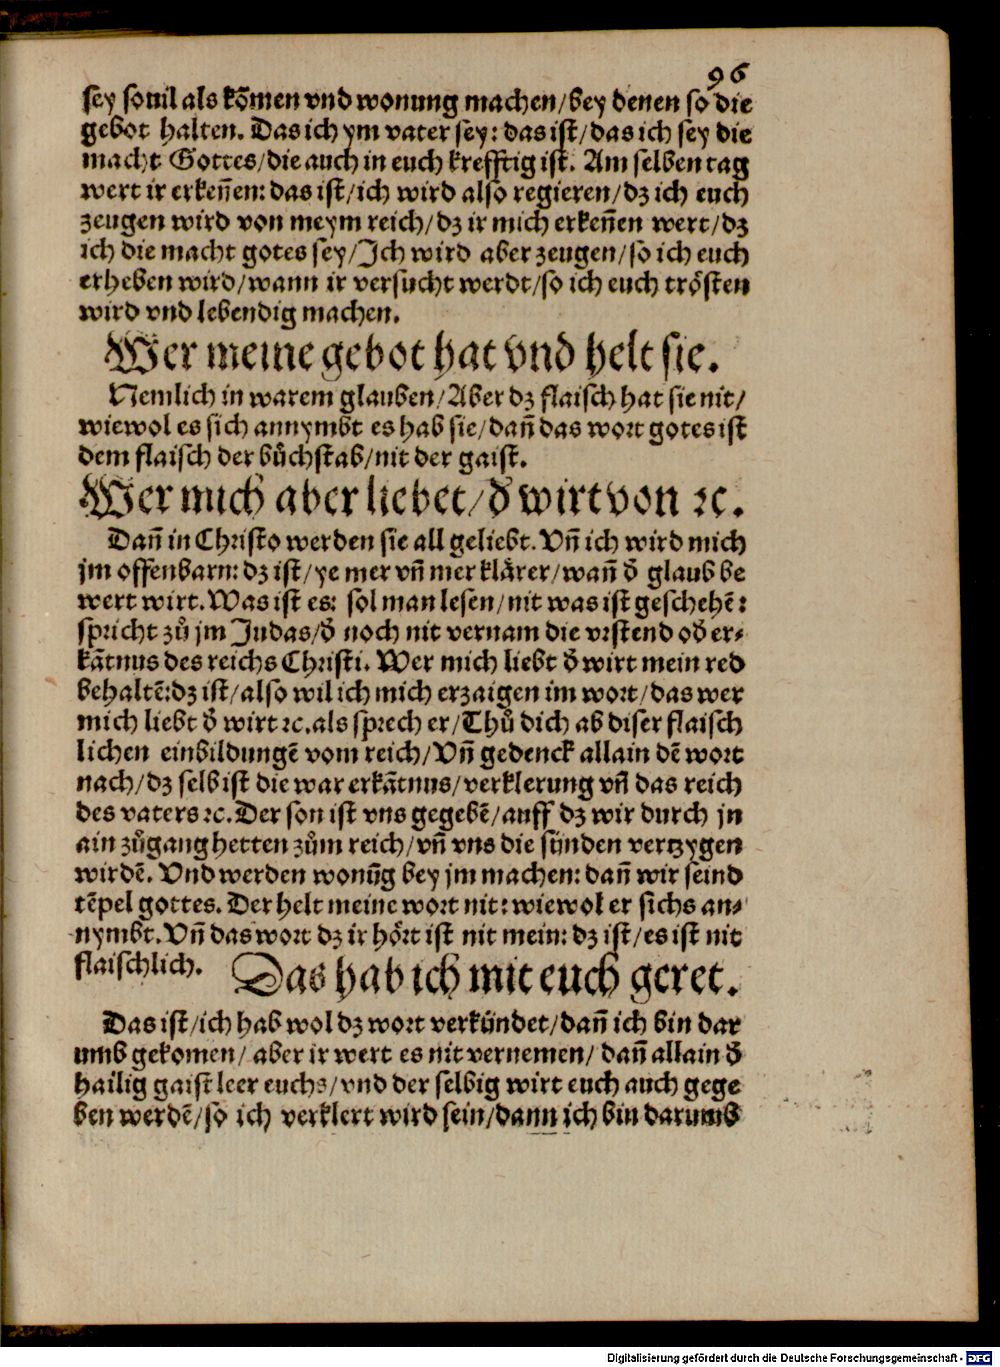 96
sey souil als kõmen vnd wonung machen/bey denen so die
gebot halten. Das ich ym vater sey: das ist/das ich sey die
macht Gottes/die auch in euch krefftig ist. Am selben tag
wert ir erkeñen: das ist/ich wird also regieren/dz ich euch
zeugen wird von meym reich/dz ir mich erkeñen wert/dz
ich die macht gotes sey/Jch wird aber zeugen/so ich euch
erheben wird/wann ir versucht werdt/so ich euch trösten
wird vnd lebendig machen.
Wer meine gebot hat vnd helt sie.
Nemlich in warem glauben/Aber dz flaisch hat sie nit/
wiewol es sich annymbt es hab sie/dañ das wort gotes ist
dem flaisch der bůchstab/nit der gaist.
Wer mich aber liebet/d̄ wirt von ꝛc.
Dañ in Christo werden sie all geliebt. Vñ ich wird mich
jm offenbarn: dz ist/ye mer vñ mer klårer/wañ d̄ glaub be
wert wirt. Was ist es: sol man lesen/nit was ist geschehẽ:
spricht zů jm Judas/d̄ noch nit vernam die vrstend od̄ er⸗
kãtnus des reichs Christi. Wer mich liebt d̄ wirt mein red
behaltẽ: dz ist/also wil ich mich erzaigen im wort/das wer
mich liebt d̄ wirt ꝛc. als sprech er/Thů dich ab diser flaisch
lichen einbildungẽ vom reich/Vñ gedenck allain dẽ wort
nach/dz selb ist die war erkãtnus/verklerung vñ das reich
des vaters ꝛc. Der son ist vns gegebẽ/auff dz wir durch jn
ain zůgang hetten zům reich/vñ vns die sünden vertzygen
wirdẽ. Vnd werden wonũg bey jm machen: dañ wir seind
tẽpel gottes. Der helt meine wort nit: wiewol er sichs an⸗
nymbt. Vñ das wort dz ir hört ist nit mein: dz ist/es ist nit
flaischlich. Das hab ich mit euch geret.
Das ist/ich hab wol dz wort verkündet/dañ ich bin dar
umb gekomen/ aber ir wert es nit vernemen/ dañ allain d̄
hailig gaist leer euchs/vnd der selbig wirt euch auch gege
ben werdẽ/so ich verklert wird sein/dann ich bin darumb
Digitalisierung gefördert durch die Deutsche Forschungsgemeinschaft - DFG